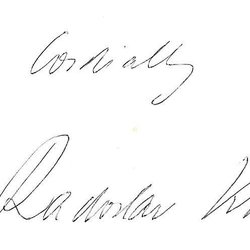 Cordially
Radoslav